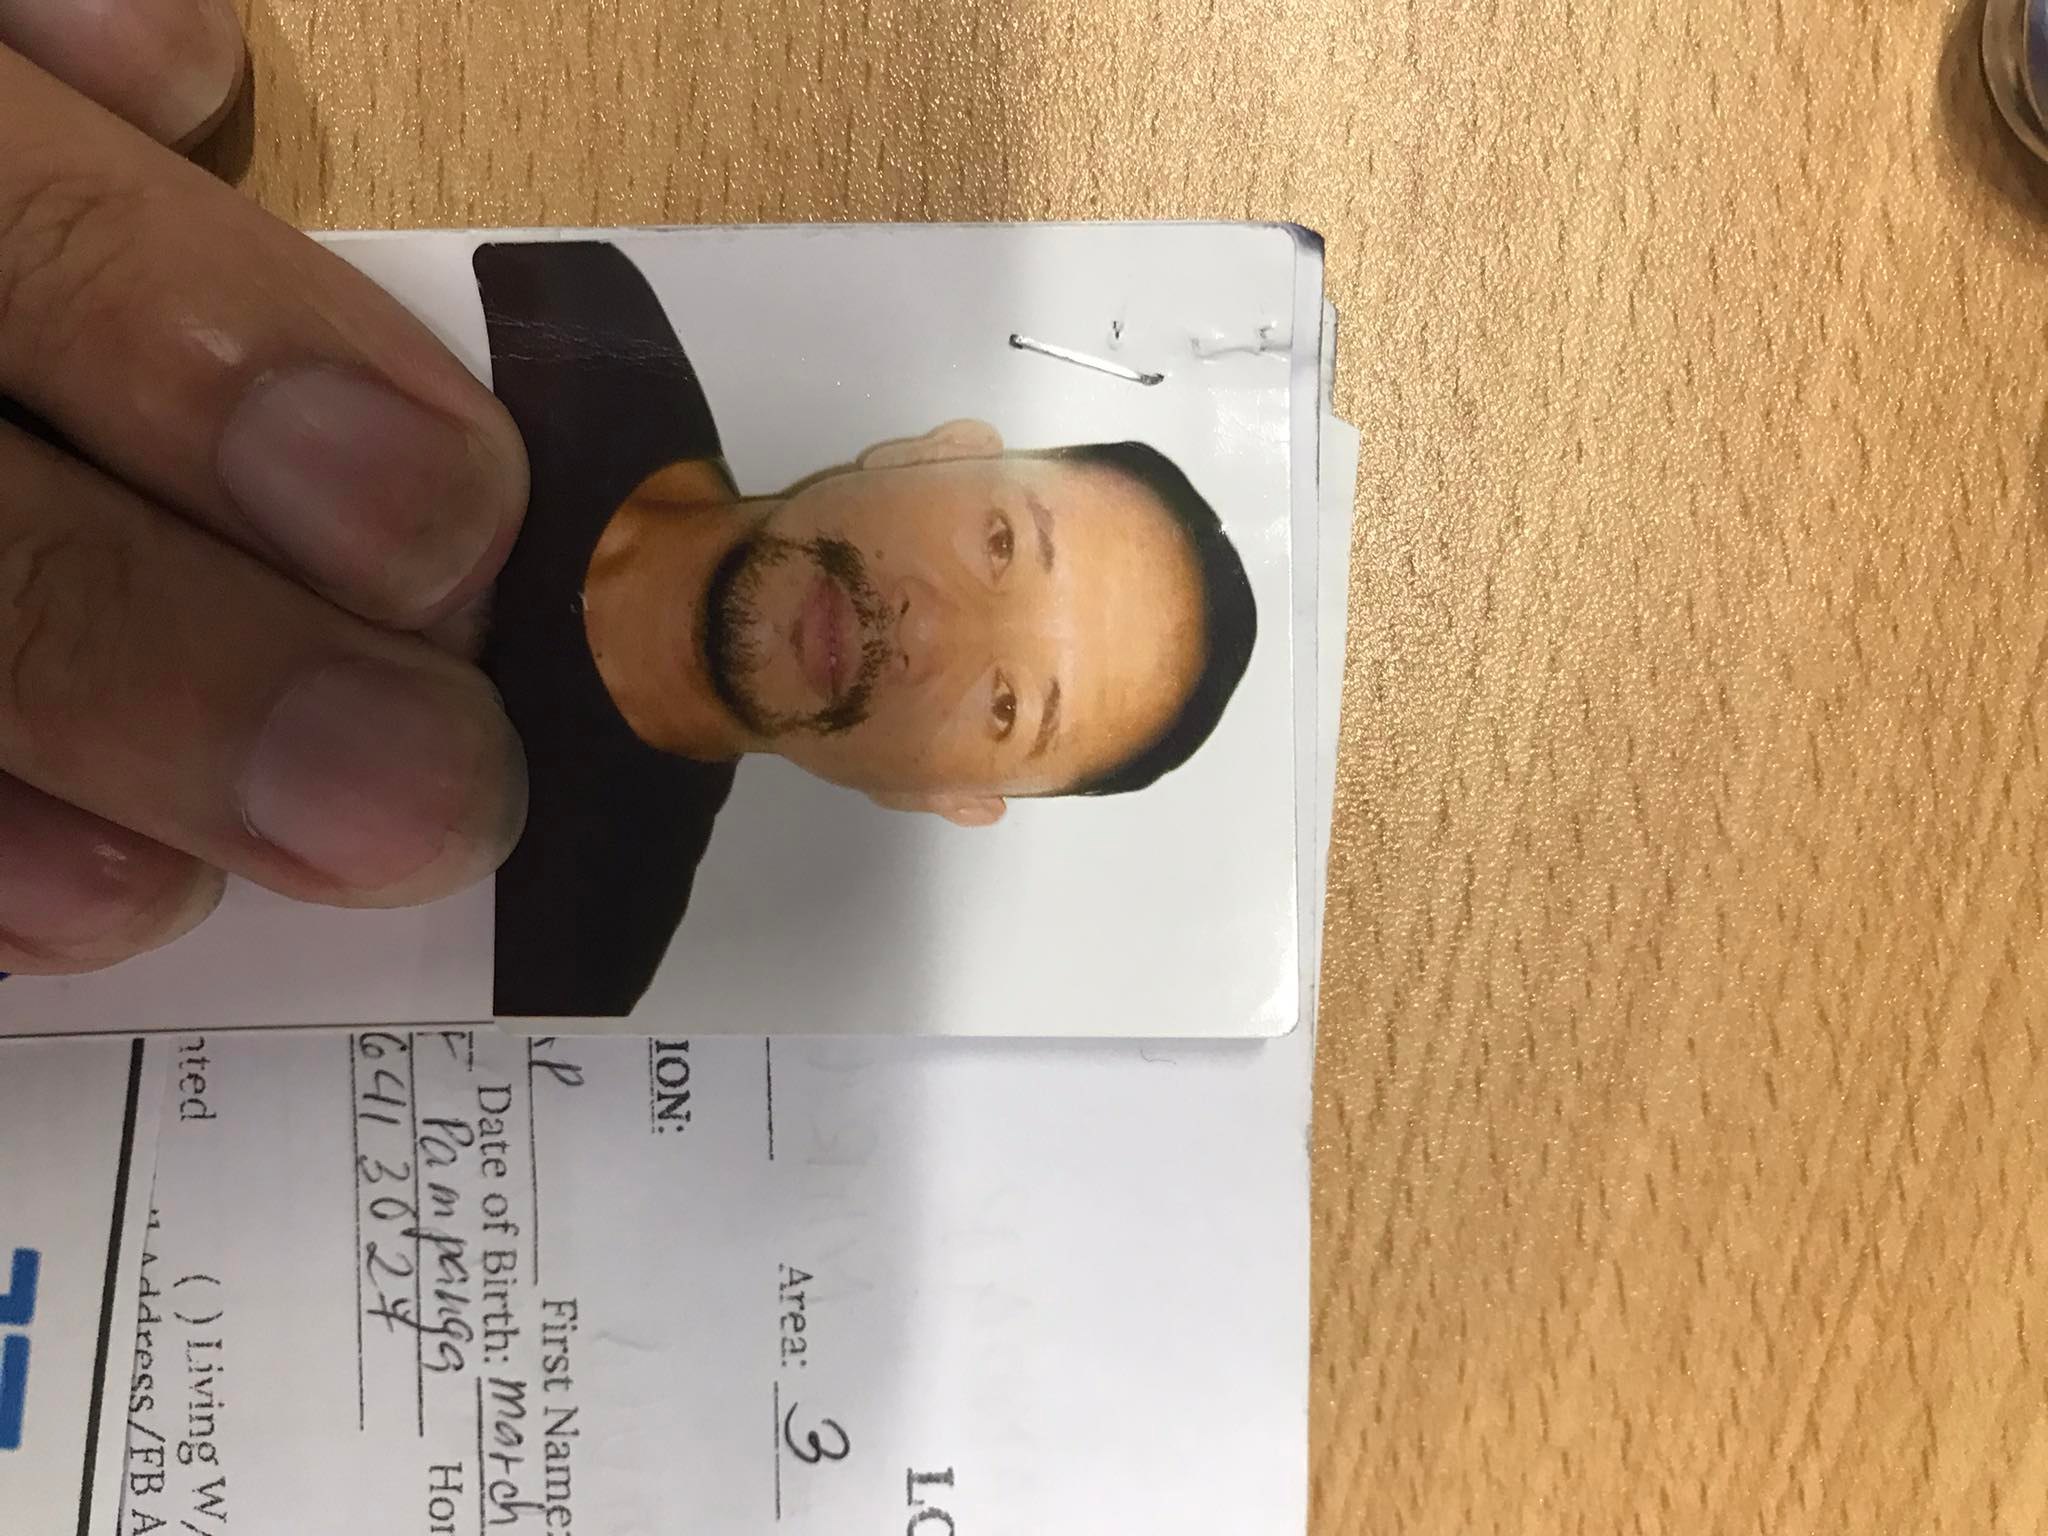 LO
Area: 3
ION:
First Name:
Date of Birth: March
Pampanga Hor
641 30 24
nted ( ) Living W/
Address/FB A